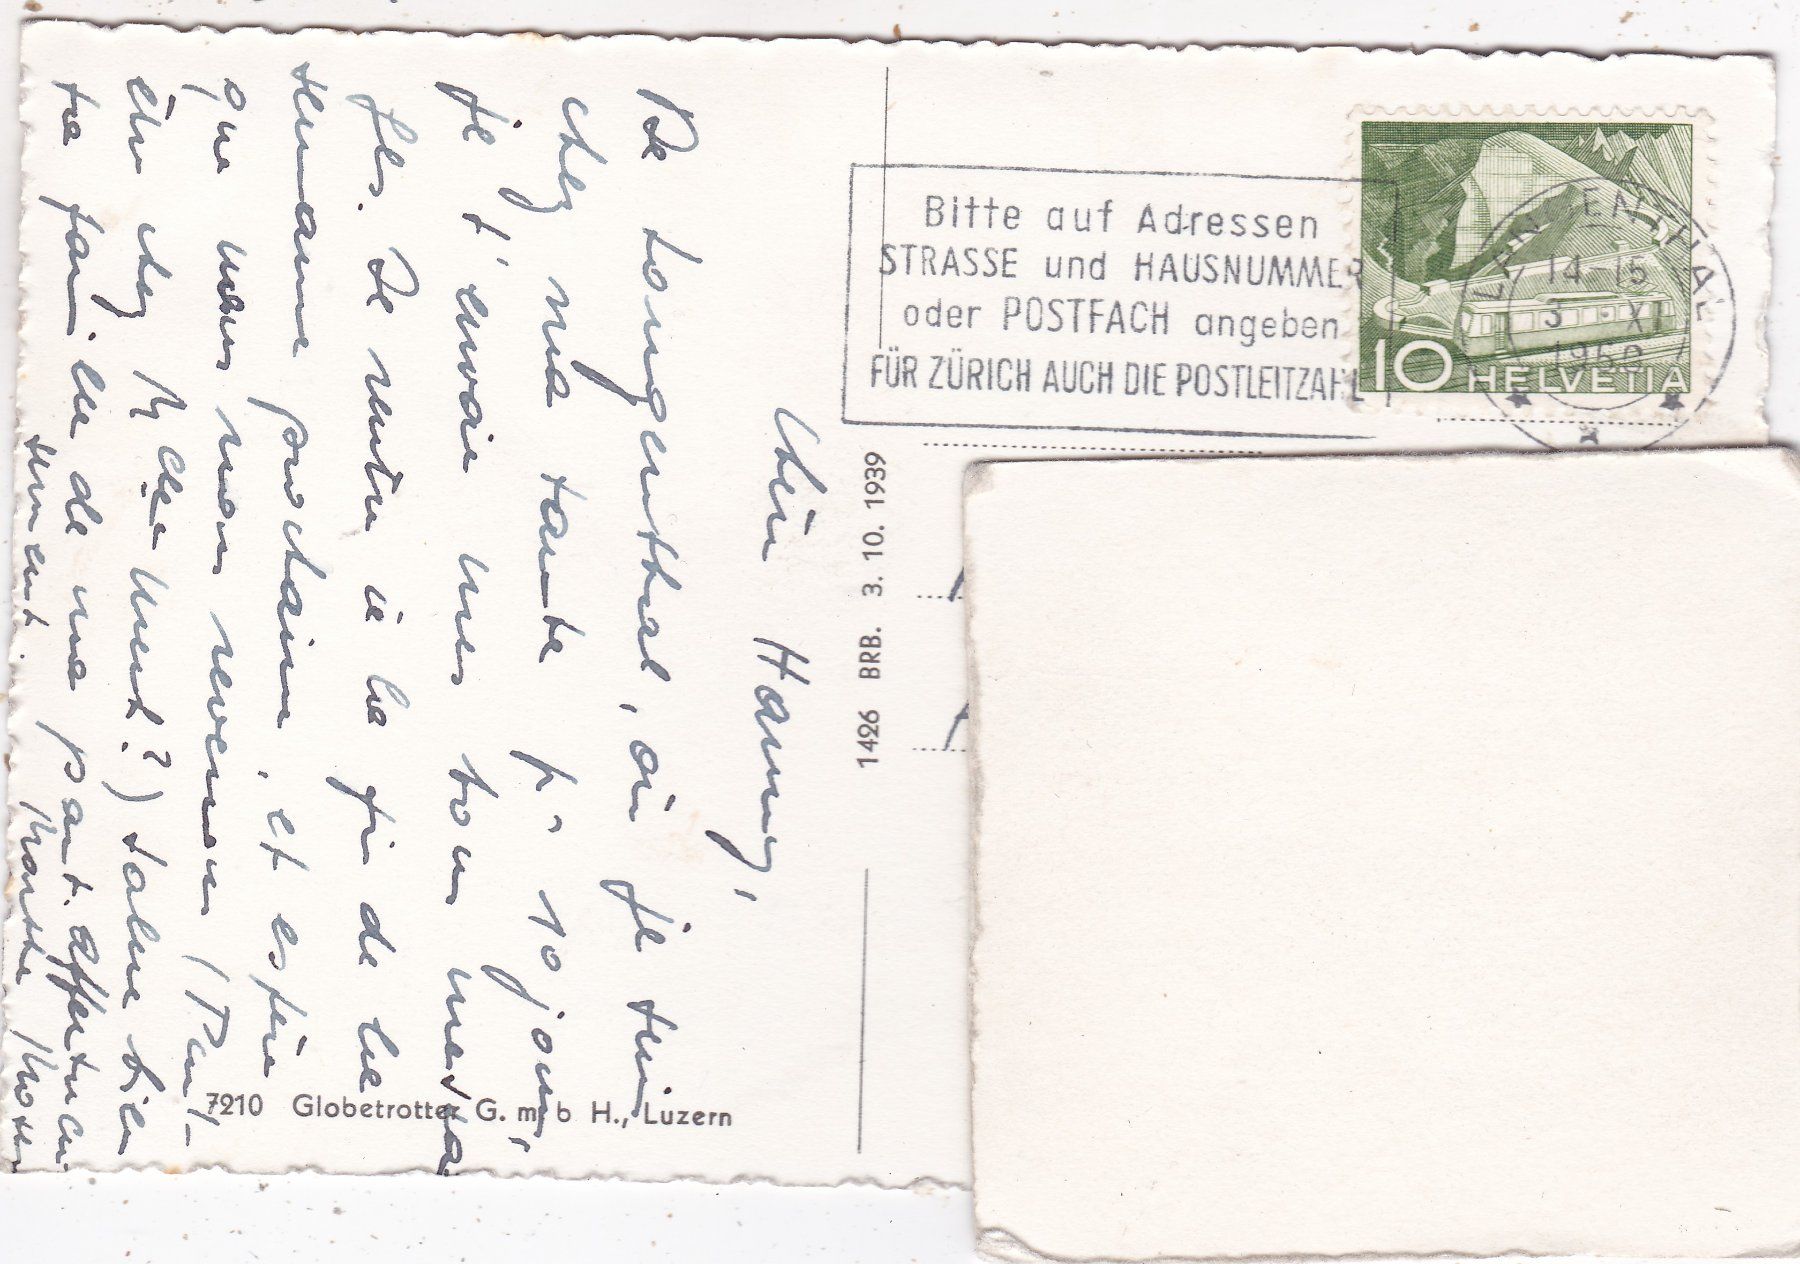 Bitte auf Adressen
STRASSE und HAUSNUMMER
oder POSTFACH angeben
FÜR ZÜRICH AUCH DIE POSTLEITZAHL
LANGENTHAL
14-15
3. X
HELVETIA
10
1426 BRB. 3. 10. 1939
7210 Globetrotter G. m b H., Luzern
De Langenthal, où je suis
chez ma tante p. 10 jours,
je t'envoie mes bons messa-
ges. Je rentre à la fin de la
semaine prochaine, et espère
que nous nous reverrons
chez
ment?) Salue bien
ta famille de ma part. Affectueu-
sement.